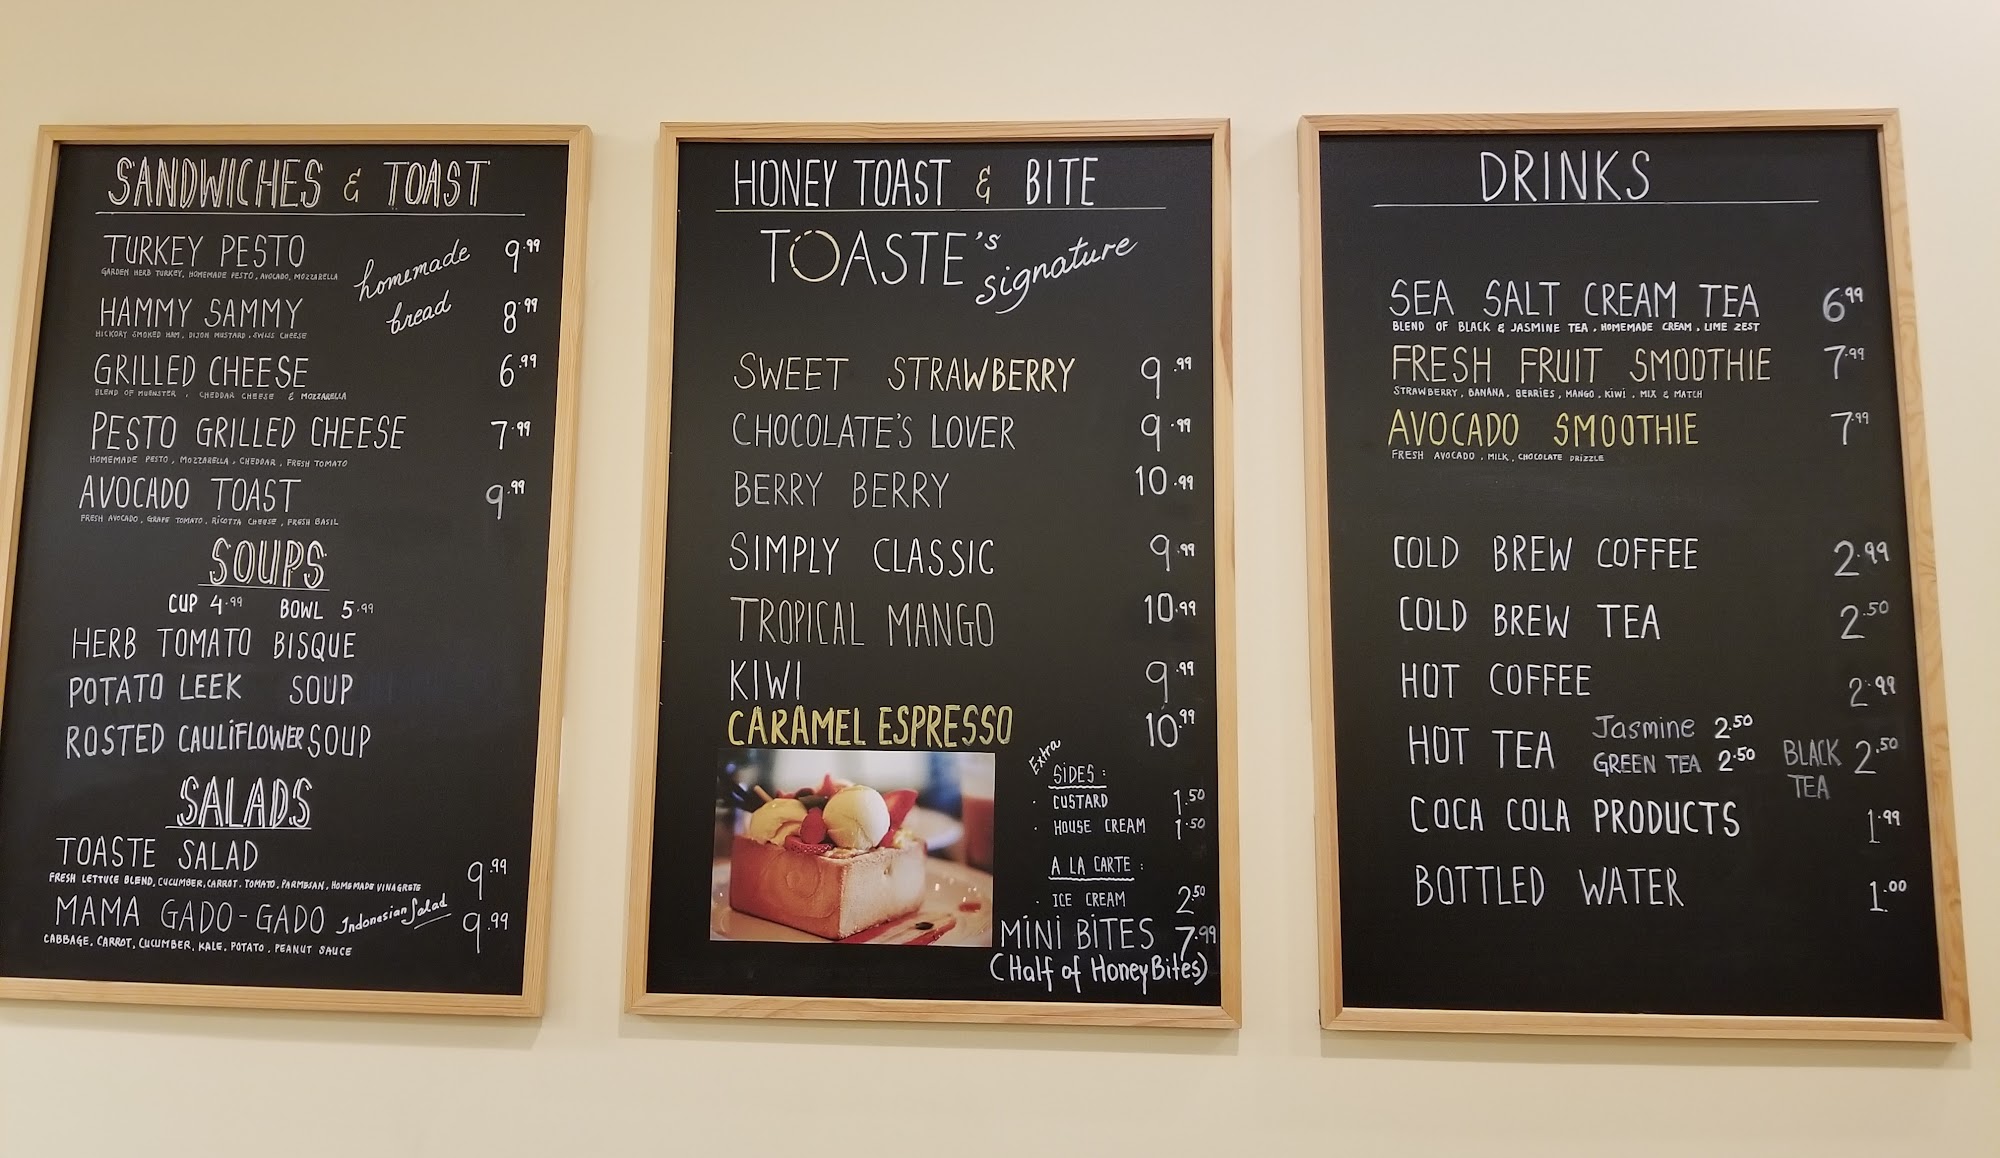 SANDWICHES & TOAST
TURKEY PESTO 9.99
GARDEN HERB TURKEY, HOMEMADE PESTO, AVOCADO, MOZZARELLA
homemade
bread
HAMMY SAMMY 8.99
HICKORY SMOKED HAM, DIJON MUSTARD, SWISS CHEESE
GRILLED CHEESE 6.99
BLEND OF MUENSTER, CHEDDAR CHEESE & MOZZARELLA
PESTO GRILLED CHEESE 7.99
HOMEMADE PESTO, MOZZARELLA, CHEDDAR, FRESH TOMATO
AVOCADO TOAST 9.99
FRESH AVOCADO, GRAPE TOMATO, RICOTTA CHEESE, FRESH BASIL
SOUPS
CUP 4.99 BOWL 5.99
HERB TOMATO BISQUE
POTATO LEEK SOUP
ROSTED CAULIFLOWER SOUP
SALADS
TOASTE SALAD 9.99
FRESH LETTUCE BLEND, CUCUMBER, CARROT, TOMATO, PARMESAN, HOMEMADE VINAGRETE
MAMA GADO-GADO Indonesian Salad 9.99
CABBAGE, CARROT, CUCUMBER, KALE, POTATO, PEANUT SAUCE
HONEY TOAST & BITE
TOASTE's signature
SWEET STRAWBERRY 9.99
CHOCOLATE'S LOVER 9.99
BERRY BERRY 10.99
SIMPLY CLASSIC 9.99
TROPICAL MANGO 10.99
KIWI 9.99
CARAMEL ESPRESSO 10.99
Extra
SIDES:
· CUSTARD 1.50
· HOUSE CREAM 1.50
A LA CARTE:
· ICE CREAM 2.50
MINI BITES 7.99
(Half of Honey Bites)
DRINKS
SEA SALT CREAM TEA 6.99
BLEND OF BLACK & JASMINE TEA, HOMEMADE CREAM, LIME ZEST
FRESH FRUIT SMOOTHIE 7.99
STRAWBERRY, BANANA, BERRIES, MANGO, KIWI, MIX & MATCH
AVOCADO SMOOTHIE 7.99
FRESH AVOCADO, MILK, CHOCOLATE DRIZZLE
COLD BREW COFFEE 2.99
COLD BREW TEA 2.50
HOT COFFEE 2.99
HOT TEA Jasmine 2.50
GREEN TEA 2.50
BLACK TEA 2.50
COCA COLA PRODUCTS 1.99
BOTTLED WATER 1.00